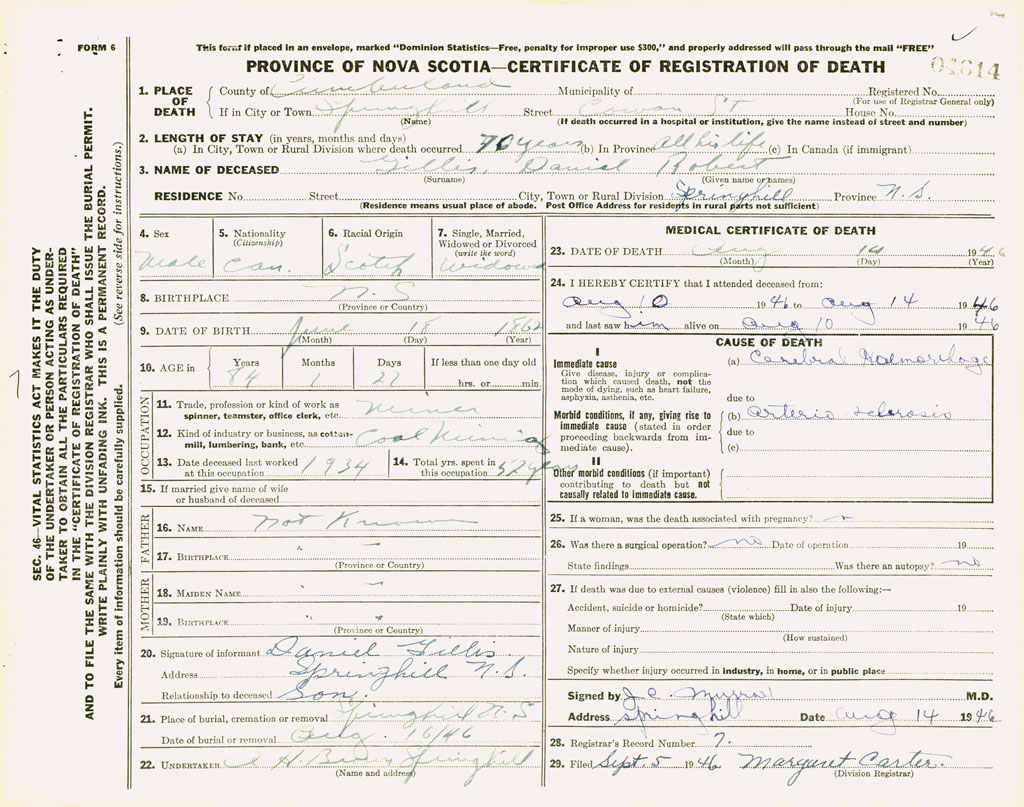 FORM 6
This form if placed in an envelope, marked "Dominion Statistics—Free, penalty for improper use $300," and properly addressed will pass through the mail "FREE"
PROVINCE OF NOVA SCOTIA—CERTIFICATE OF REGISTRATION OF DEATH
04614
1. PLACE OF DEATH
County of Cumberland Municipality of Registered No.
(For use of Registrar General only)
If in City or Town Springhill Street Cowan St House No.
(Name) (If death occurred in a hospital or institution, give the name instead of street and number)
2. LENGTH OF STAY (in years, months and days)
(a) In City, Town or Rural Division where death occurred 70 years (b) In Province all his life (c) In Canada (if immigrant)
3. NAME OF DECEASED Gillis, Daniel Robert
(Surname) (Given name or names)
RESIDENCE No. Street City, Town or Rural Division Springhill Province N.S.
(Residence means usual place of abode. Post Office Address for residents in rural parts not sufficient)
SEC. 46—VITAL STATISTICS ACT MAKES IT THE DUTY
OF THE UNDERTAKER OR PERSON ACTING AS UNDER-
TAKER TO OBTAIN ALL THE PARTICULARS REQUIRED
IN THE "CERTIFICATE OF REGISTRATION OF DEATH"
AND TO FILE THE SAME WITH THE DIVISION REGISTRAR WHO SHALL ISSUE THE BURIAL PERMIT.
WRITE PLAINLY WITH UNFADING INK. THIS IS A PERMANENT RECORD.
Every item of information should be carefully supplied. (See reverse side for instructions.)
4. Sex Male
5. Nationality (Citizenship) Can.
6. Racial Origin Scotch
7. Single, Married, Widowed or Divorced (write the word) Widowed
8. BIRTHPLACE N.S
(Province or Country)
9. DATE OF BIRTH June 18 1862
(Month) (Day) (Year)
10. AGE in Years 84 Months 1 Days 27 If less than one day old hrs. or min.
OCCUPATION
11. Trade, profession or kind of work as
spinner, teamster, office clerk, etc. Miner
12. Kind of industry or business, as cotton-
mill, lumbering, bank, etc. Coal Mining
13. Date deceased last worked
at this occupation 1934
14. Total yrs. spent in
this occupation 52 years
15. If married give name of wife
or husband of deceased
FATHER
16. NAME Not Known
17. BIRTHPLACE " —
(Province or Country)
MOTHER
18. MAIDEN NAME " —
19. BIRTHPLACE " "
(Province or Country)
20. Signature of informant Daniel Gillis.
Address Springhill N.S.
Relationship to deceased Son.
21. Place of burial, cremation or removal Springhill N.S
Date of burial or removal Aug. 16/46
22. UNDERTAKER H. Brown Springhill
(Name and address)
MEDICAL CERTIFICATE OF DEATH
23. DATE OF DEATH Aug 14 1946
(Month) (Day) (Year)
24. I HEREBY CERTIFY that I attended deceased from:
Aug 10 1946 to Aug 14 1946
and last saw him alive on Aug 10 1946
CAUSE OF DEATH
I
Immediate cause (a) Cerebral Haemorrhage
Give disease, injury or complica-
tion which caused death, not the
mode of dying, such as heart failure,
asphyxia, asthenia, etc.
due to
Morbid conditions, if any, giving rise to (b) Arterio sclerosis
immediate cause (stated in order
proceeding backwards from im-
mediate cause).
due to
(c)
II
Other morbid conditions (if important)
contributing to death but not
causally related to immediate cause.
25. If a woman, was the death associated with pregnancy?
26. Was there a surgical operation? no Date of operation 19
State findings Was there an autopsy? no
27. If death was due to external causes (violence) fill in also the following:—
Accident, suicide or homicide? Date of injury 19
(State which)
Manner of injury
(How sustained)
Nature of injury
Specify whether injury occurred in industry, in home, or in public place
Signed by J.C. Murray M.D.
Address Springhill Date Aug 14 1946
28. Registrar's Record Number 7.
29. Filed Sept. 5 1946. Margaret Carter.
(Division Registrar)